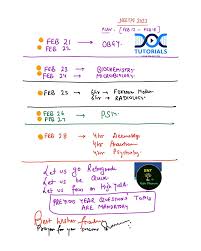 NEETPG 2021
PLAN : [FEB 12 - FEB 18]
FEB 21 → OBGY.
FEB 22
DOC
TUTORIALS
FEB 23 → BIOCHEMISTRY
FEB 24 → MICROBIOLOGY
FEB 25 → 6hr → FORENSIC
6hr → RADIOLOGY
FEB 26 → PSM.
FEB 27
FEB 28 → 4hr
4hr
4hr Psychiatry
Let us go Retrograde
Let us be Quick
Let us focus on High Yield
PREVIOUS YEAR QUESTIONS TOPIC
ARE MANDATORY
Best wishes
Prayers for your success